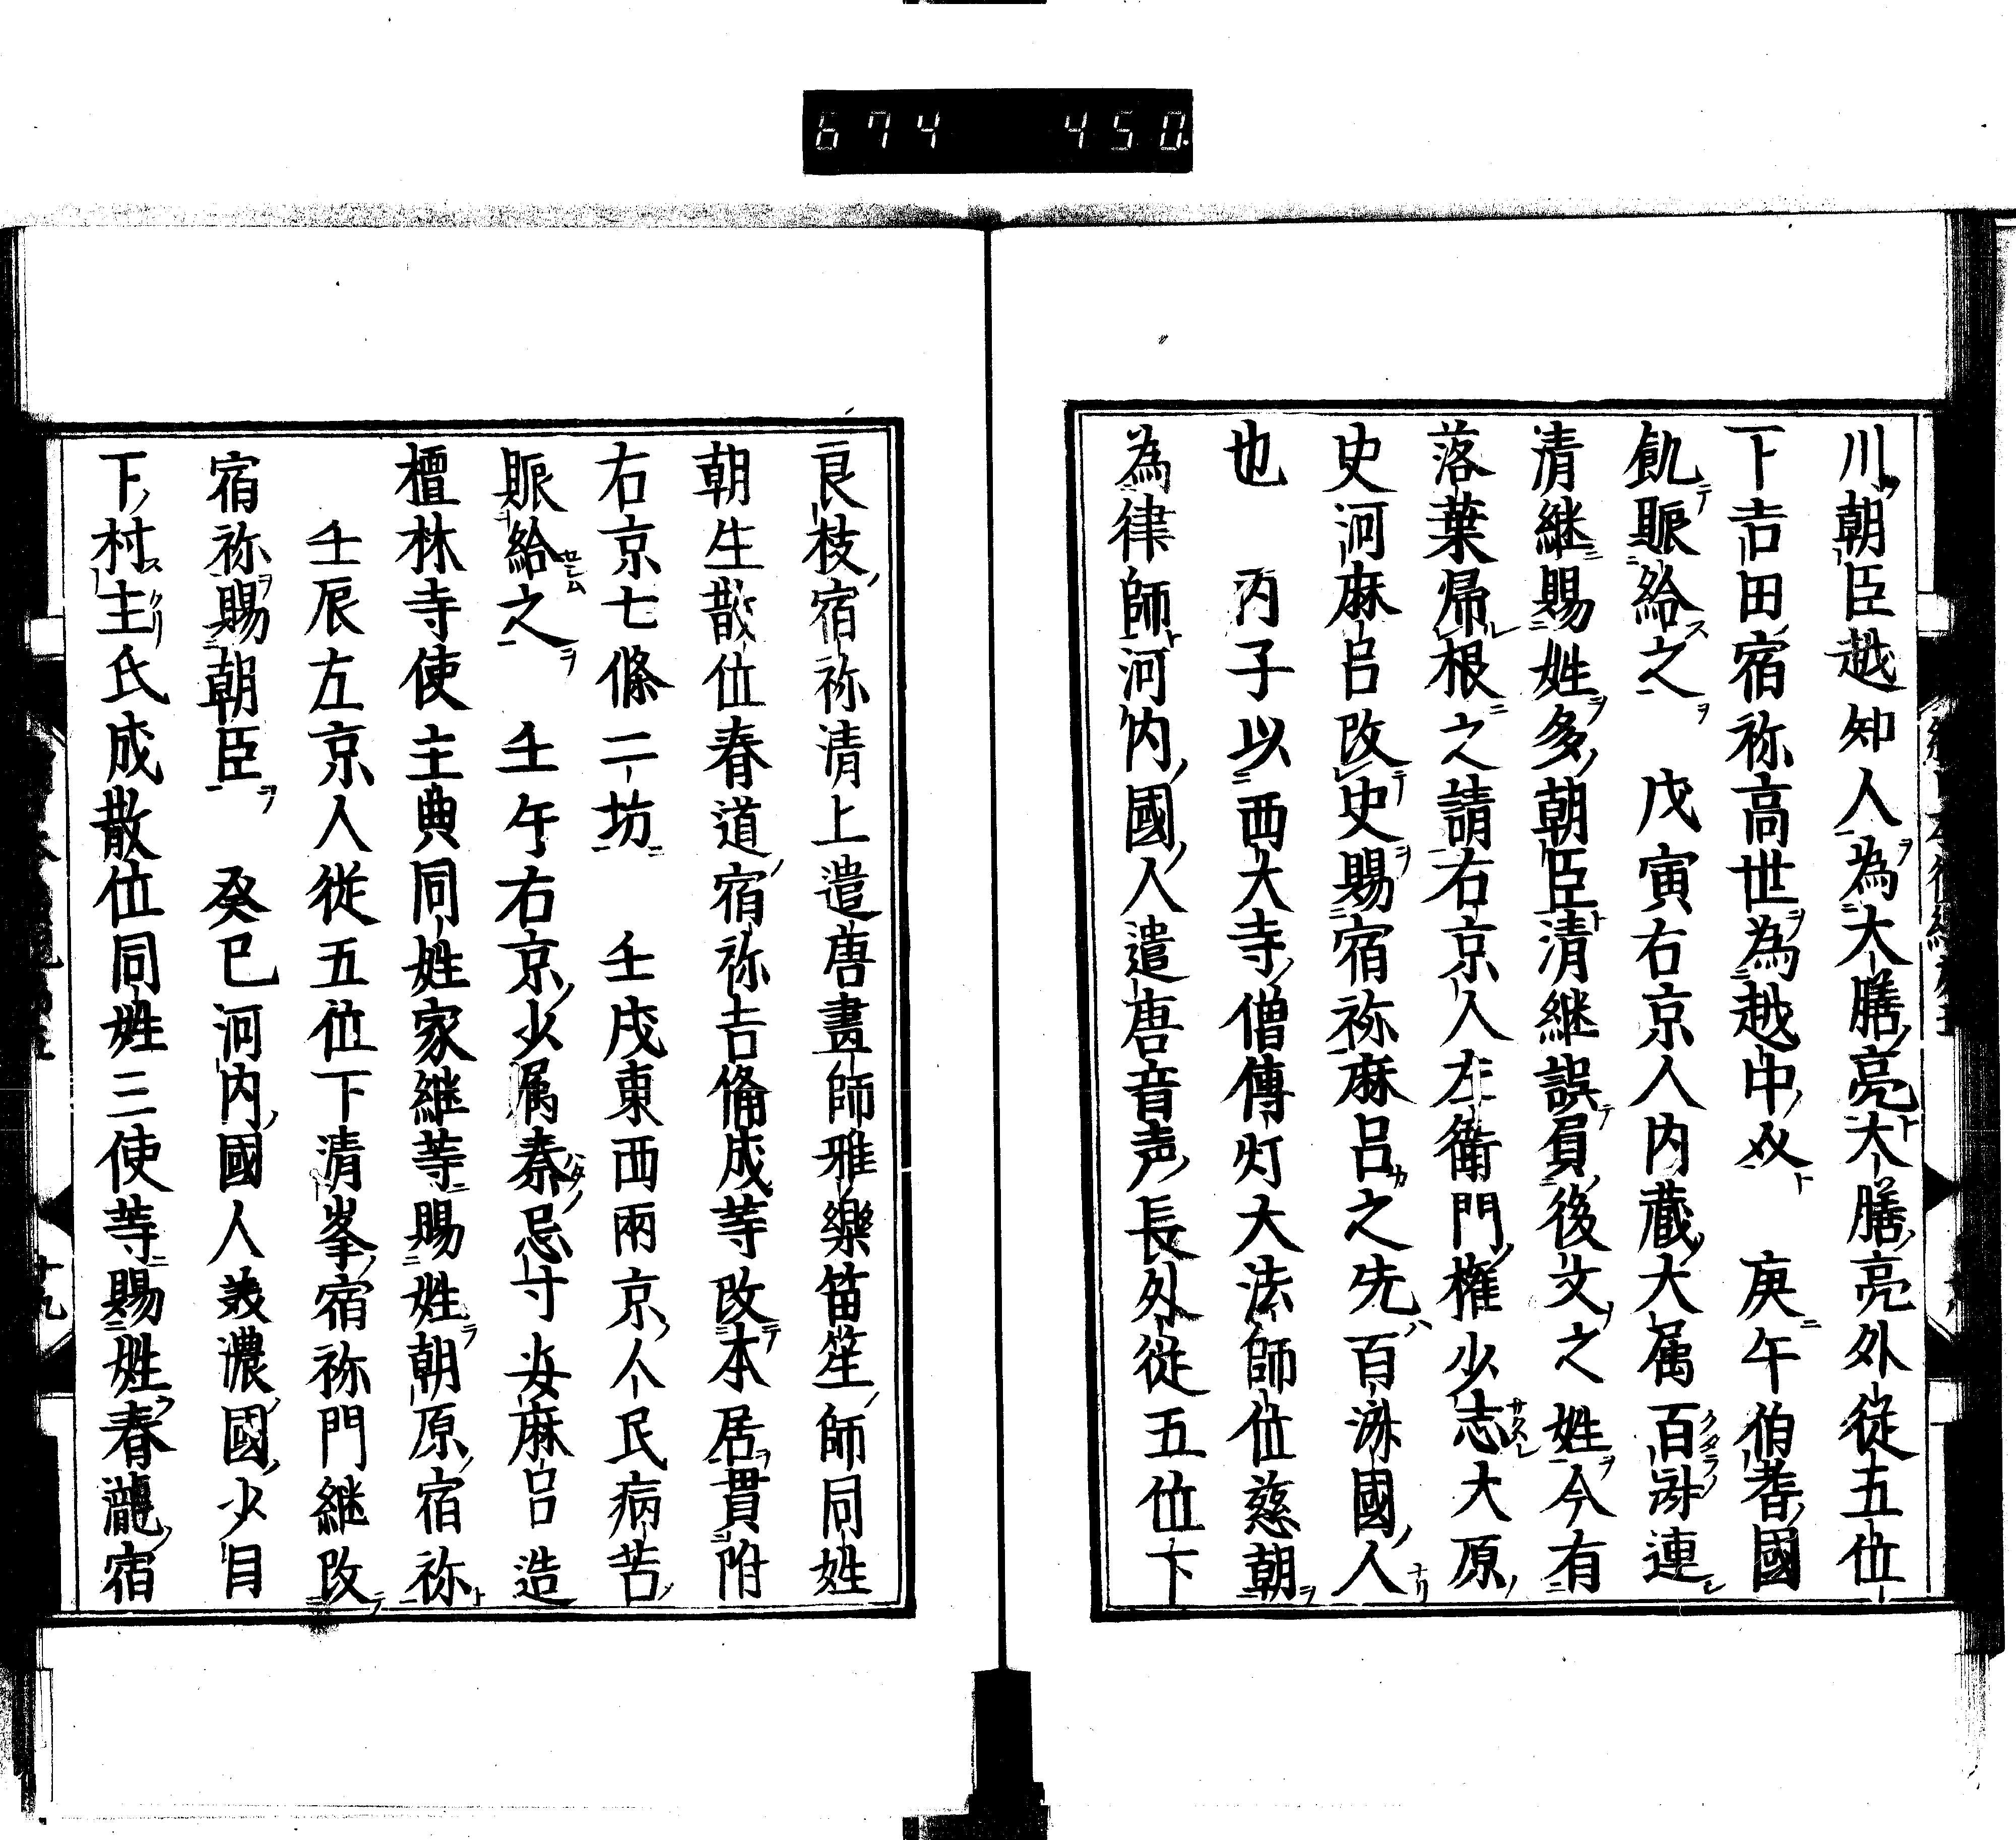 674 450
川朝臣越知人為大膳亮大膳亮外従五位
下吉田宿祢高世為越中介 庚午伯耆國
飢賑給之 戊寅右京人内蔵大属百済連
清継賜姓多朝臣清継誤負後父之姓今有
落葉帰根之請右京人左衛門権少志大原
史河麻呂改史賜宿祢麻呂之先百済國人
也 丙子以西大寺僧傳灯大法師位慈朝
為律師河内國人遣唐音声長外従五位下
良枝宿祢清上遣唐畫師雅樂笛笙師同姓
朝生散位春道宿祢吉備成等改本居貫附
右京七條二坊 壬戌東西兩京人民病苦
賑給之 壬午右京少属秦忌寸安麻呂造
檀林寺使主典同姓家継等賜姓朝原宿祢
壬辰左京人従五位下清峯宿祢門継改
宿祢賜朝臣 癸巳河内國人美濃國少目
下村主氏成散位同姓三使等賜姓春瀧宿